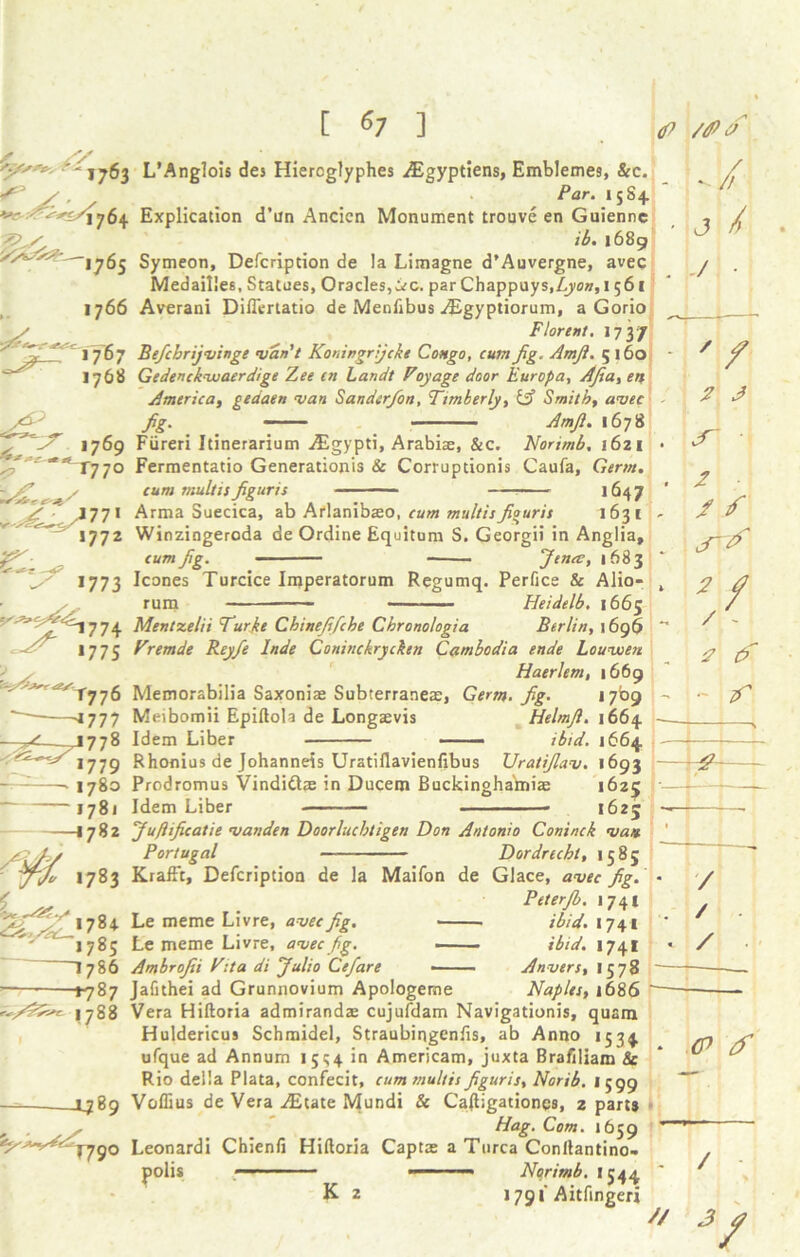 [ 67 ]
1763 L'Anglois des Hieroglyphes Ægyptiens, Emblemes, &c.
Par. 1584
1764 Explication d'un Ancien Monument trouvé en Guienne
ib. 1689
1765 Symeon, Defcription de la Limagne d'Auvergne, avec
Medailles, Statues, Oracles, &c. par Chappuys, Lyon, 1561
1766 Averani Differtatio de Menfibus Ægyptiorum, a Gorio
Florent. 1737
1767 Befchrijvinge van't Koningrijcke Congo, cum fig. Amft. 5160
1768 Gedenckwaerdige Zee en Landt Voyage door Europa, Afia, en
America, gedaen van Sanderfon, Timberly, & Smith, avec
fig. —— —— Amft. 1678
1769 Füreri Itinerarium Ægypti, Arabiæ, &c. Norimb. 1621
1770 Fermentatio Generationis & Corruptionis Caufa, Germ.
cum multis figuris —— —— 1647
1771 Arma Suecica, ab Arlanibæo, cum multis figuris 1631
1772 Winzingeroda de Ordine Equitum S. Georgii in Anglia,
cum fig. —— —— Jenæ, 1683
1773 Icones Turcice Imperatorum Regumq. Perfice & Alio-
rum —— —— Heidelb. 1665
1774 Mentzelii Turke Chinefifche Chronologia Berlin, 1696
1775 Vremde Reyfe Inde Coninckrycken Cambodia ende Louwen
Haerlem, 1669
1776 Memorabilia Saxoniæ Subterraneæ, Germ. fig. 1709
1777 Meibomii Epiftola de Longævis Helmft. 1664
1778 Idem Liber —— —— ibid. 1664
1779 Rhonius de Johanneis Uratiflavienfibus Uratiflav. 1693
1780 Prodromus Vindictæ in Ducem Buckinghamiæ 1625
1781 Idem Liber —— —— 1625
1782 Juftificatie vanden Doorluchtigen Don Antonio Coninck van
Portugal —— Dordrecht, 1585
1783 Krafft, Defcription de la Maifon de Glace, avec fig.
Peterfb. 1741
1784 Le meme Livre, avec fig. —— ibid. 1741
1785 Le meme Livre, avec fig. —— ibid. 1741
1786 Ambrofii Vita di Julio Cefare —— Anvers, 1578
1787 Jafithei ad Grunnovium Apologeme Naples, 1686
1788 Vera Hiftoria admirandæ cujufdam Navigationis, quam
Huldericus Schmidel, Straubingenfis, ab Anno 1534
ufque ad Annum 1554 in Americam, juxta Brafiliam &
Rio della Plata, confecit, cum multis figuris, Norib. 1599
1789 Voffius de Vera Ætate Mundi & Caftigationes, 2 parts
Hag. Com. 1659
1790 Leonardi Chienfi Hiftoria Captæ a Turca Conftantino-
polis —— —— Norimb. 1544
K 2 1791 Aitfingeri